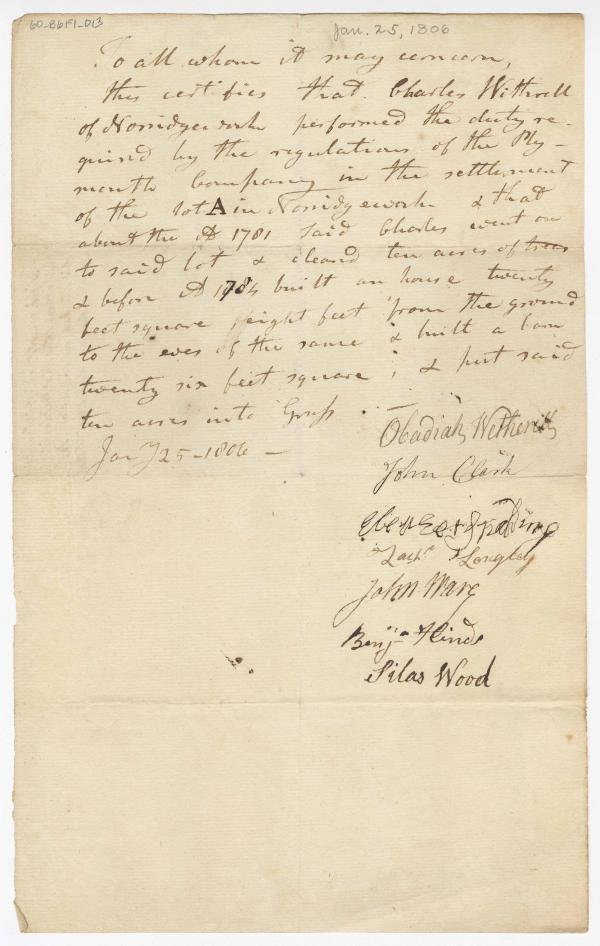 60-B6F1-D13
Jan. 25, 1806
To all whom it may concern,
this certifies that Charles Withrell
of Norridgework performed the duty re-
quired by the regulations of the Ply-
mouth Company in the settlement
of the lot A in Norridgework & that
about the AD 1781 said Charles went on
to said lot & cleard ten acres of trees
& before AD 1784 built an house twenty
feet square eight feet from the ground
to the eves of the same & built a barn
twenty six feet square ; & put said
ten acres into Grass . —
Jany 25 - 1806 —
Obadiah Witherill
John Clark
Ebenezer Spalding
Zachr Longley
John Ware
Benjn Hinds
Silas Wood